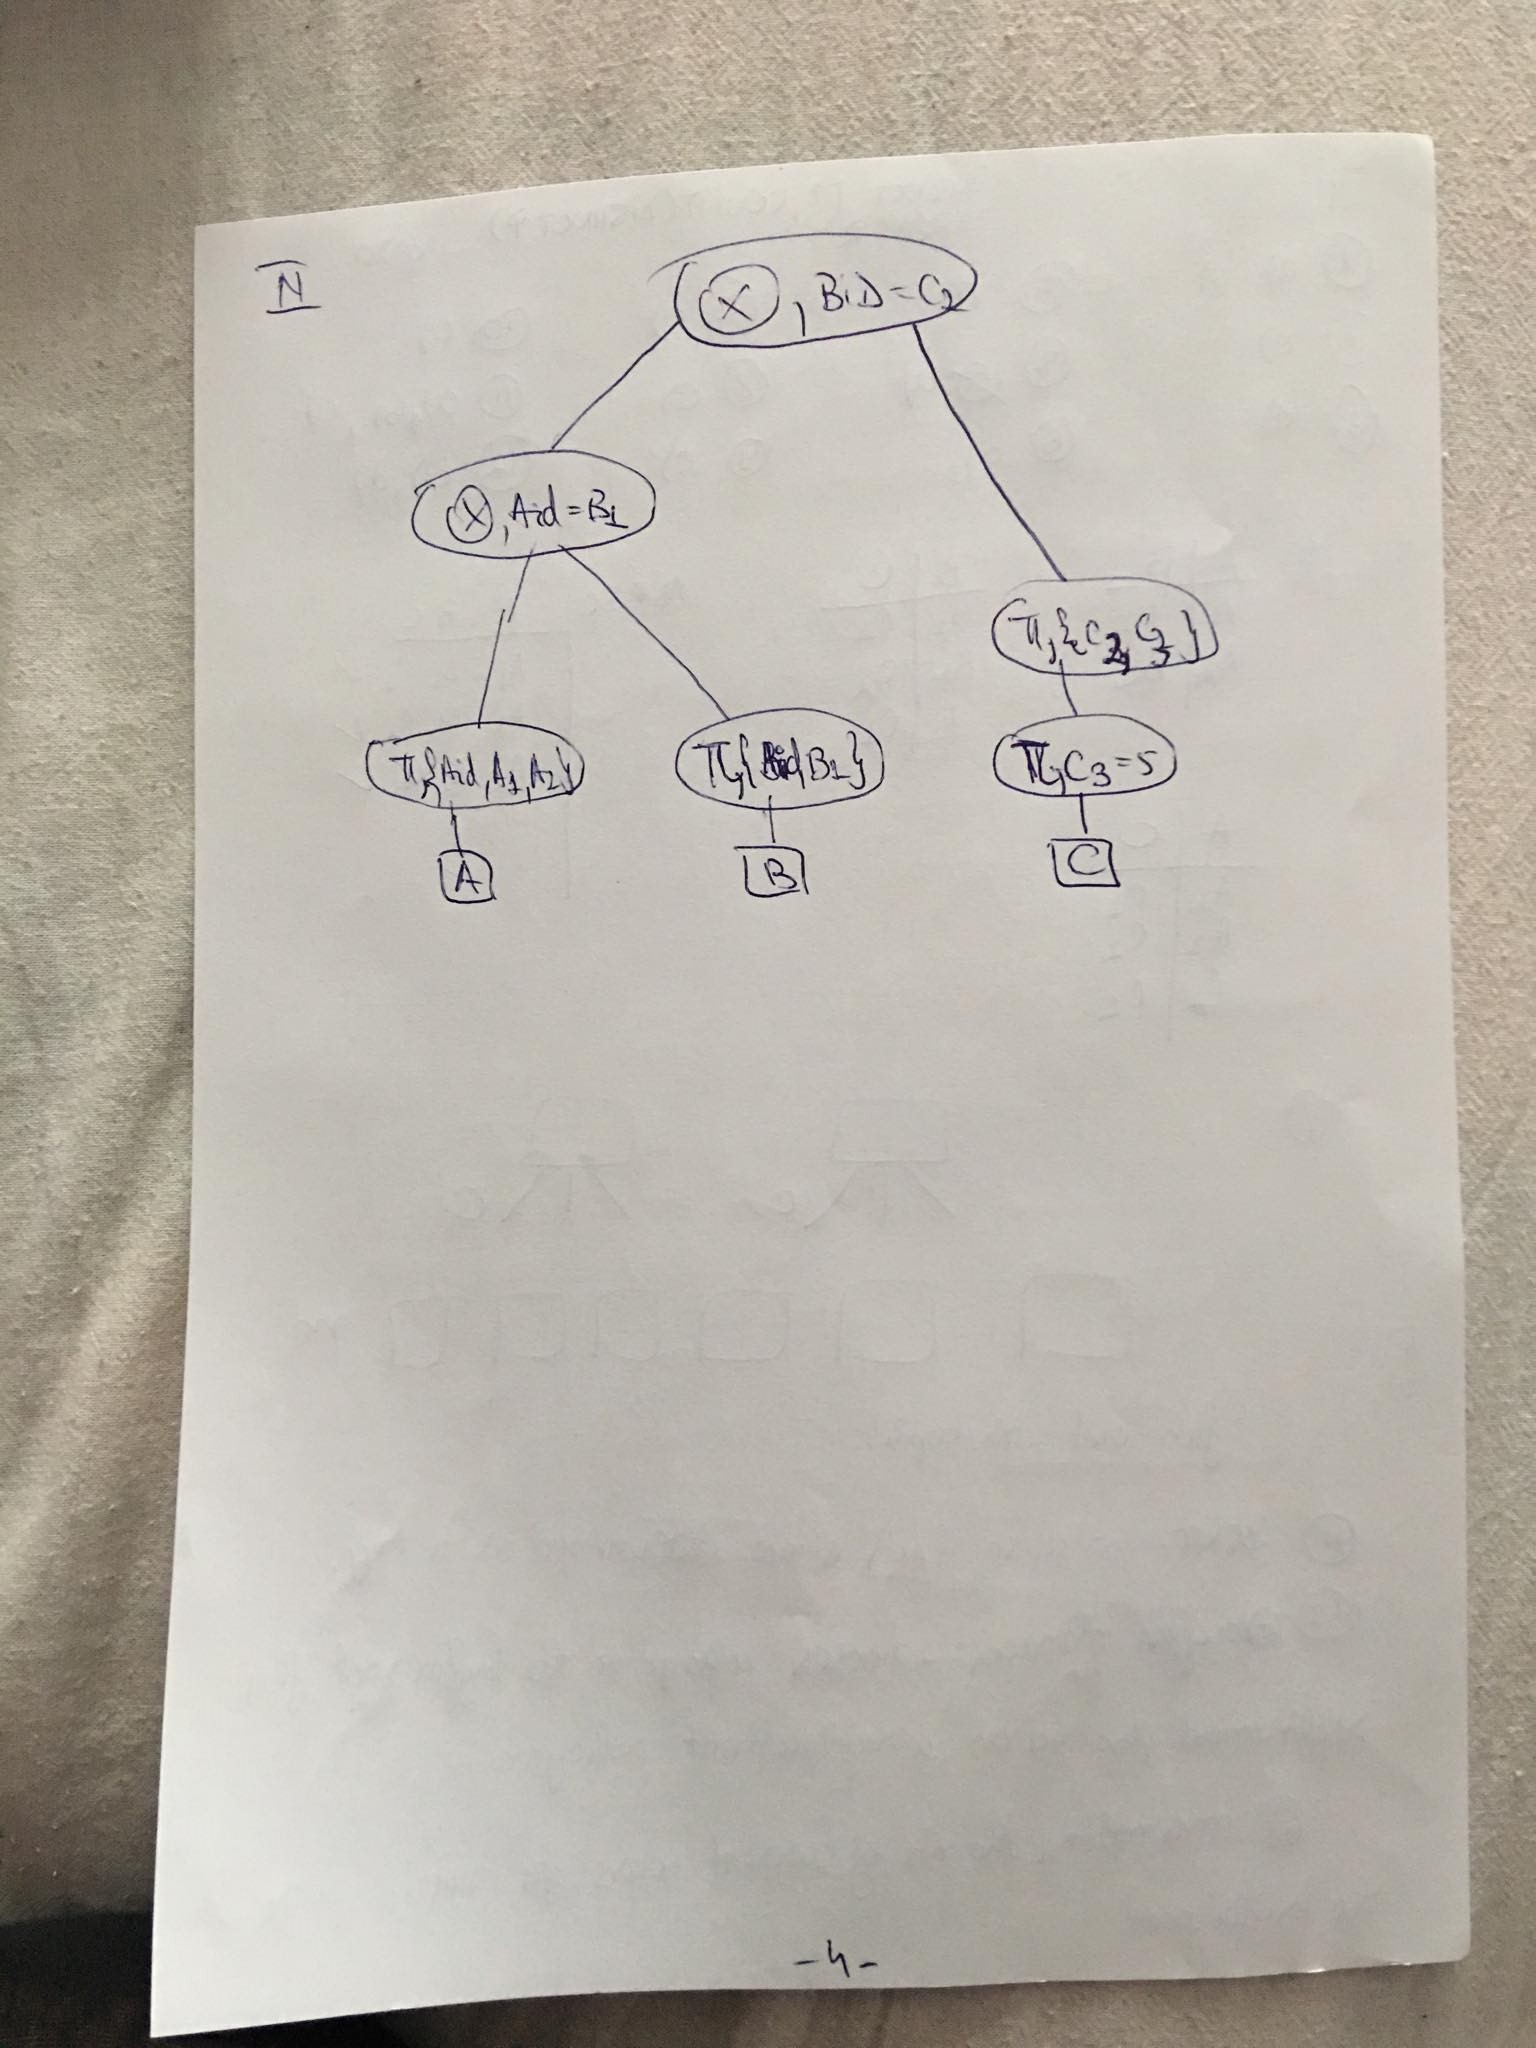 IV
ⓧ, BiD=C2
ⓧ, Aid=B1
π,{C2,C3}
π,{Aid,A1,A2} π,{Bid,B1} π,C3=5
A B C
-4-